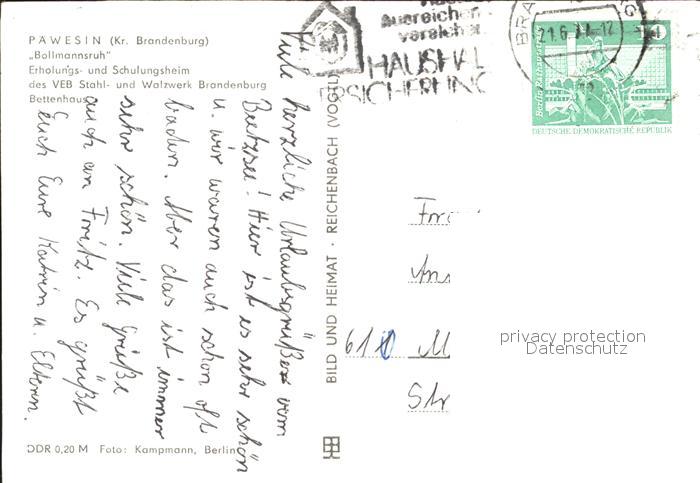 PÄWESIN (Kr. Brandenburg)
„Bollmannsruh"
Erholungs- und Schulungsheim
des VEB Stahl- und Walzwerk Brandenburg
Bettenhaus
Viele herzliche Urlaubsgrüße vom
Beetzsee! Hier ist es sehr schön
u. wir waren auch schon oft
baden. Aber das ist immer
sehr schön. Viele Grüße
auch an Fritz. Es grüßt
Euch Eure Katrin u. Eltern.
DDR 0,20 M Foto: Kampmann, Berlin
BILD UND HEIMAT · REICHENBACH (VOGTL
Ausreichen
versicher
HAUSHAL
RSICHERUNG
BRA
21.6.77-12
G
Berlin Rathausstr
10
DEUTSCHE DEMOKRATISCHE REPUBLIK
Fr
An
611 M
Str
privacy protection
Datenschutz